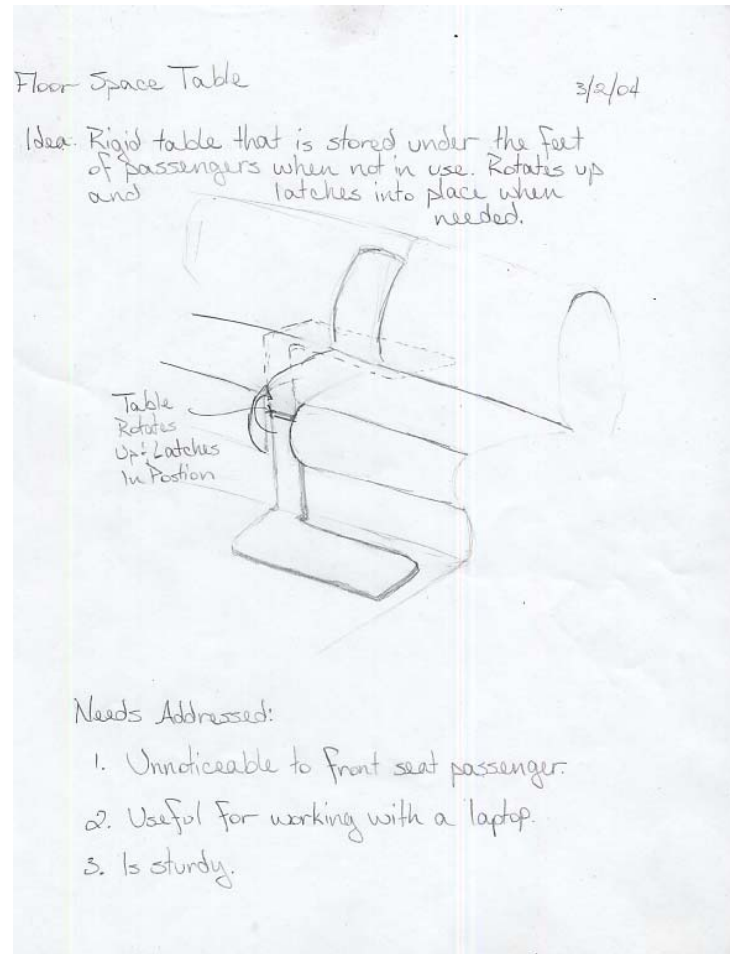 Floor Space Table
3/2/04
Idea: Rigid table that is stored under the feet
of passengers when not in use. Rotates up
and latches into place when
needed.
Table
Rotates
Up & Latches
In Postion
Needs Addressed:
1. Unnoticeable to front seat passenger.
2. Useful for working with a laptop.
3. Is sturdy.